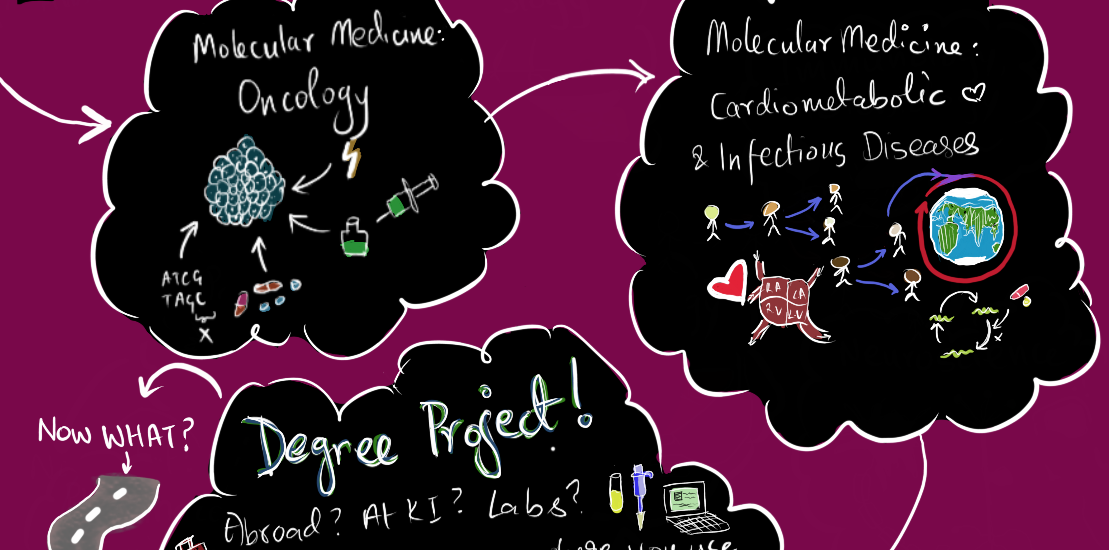 Molecular Medicine:
Oncology
ATCG
TAGC
X
Molecular Medicine:
Cardiometabolic ♡
& Infectious Diseases
RA LA
RV LV
x
Now WHAT?
Degree Project!
Abroad? At KI? Labs?
you use